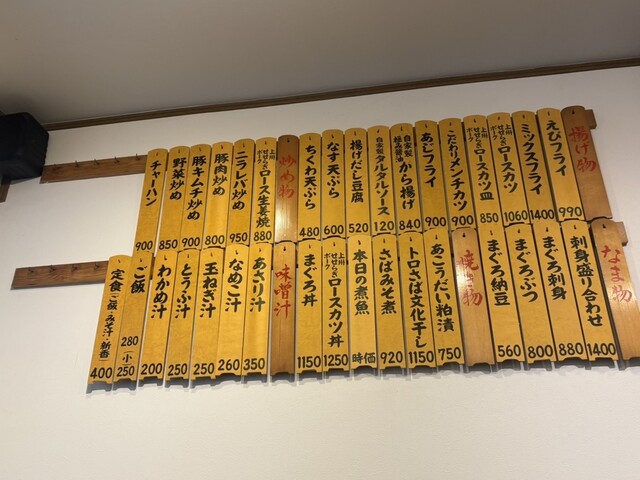 揚げ物
えびフライ 990
ミックスフライ 1400
上州せせらぎポーク ロースカツ 1060
上州せせらぎポーク ロースカツ皿 850
こだわりメンチカツ 900
あじフライ 900
自家製極み醤油 から揚げ 840
自家製タルタルソース 120
揚げだし豆腐 520
なす天ぷら 600
ちくわ天ぷら 480
炒め物
上州せせらぎポーク ロース生姜焼 880
ニラレバ炒め 950
豚肉炒め 800
豚キムチ炒め 900
野菜炒め 850
チャーハン 900
なま物
刺身盛り合わせ 1400
まぐろ刺身 880
まぐろぶつ 800
まぐろ納豆 560
焼き物
あこうだい粕漬 750
トロさば文化干し 1150
さばみそ煮 920
本日の煮魚 時価
上州せせらぎポーク ロースカツ丼 1250
まぐろ丼 1150
味噌汁
あさり汁 350
なめこ汁 260
玉ねぎ汁 250
とうふ汁 250
わかめ汁 200
ご飯 280 (小) 250
定食(ご飯・みそ汁・新香) 400